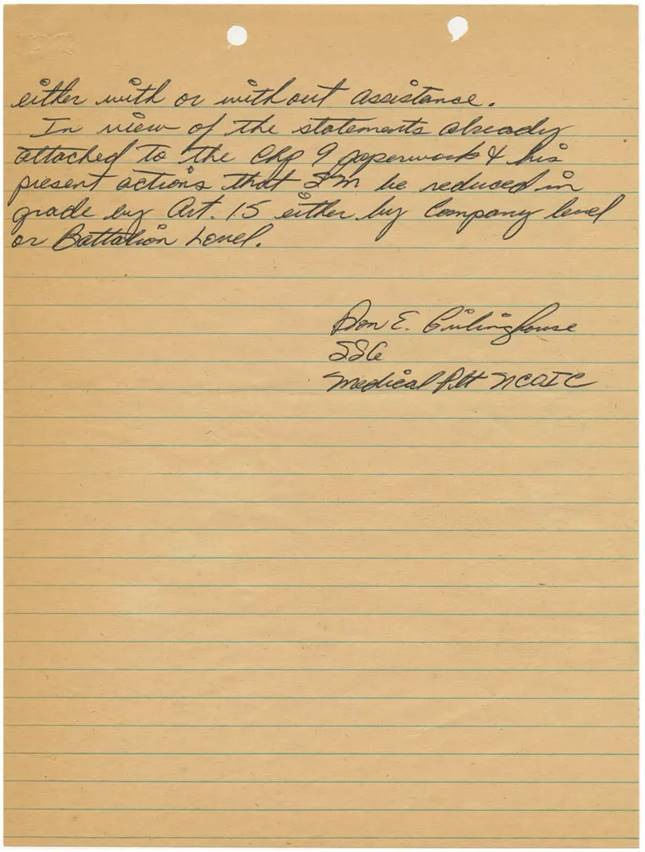 either with or without assistance.
In view of the statements already
attached to the Chp 9 paperwork & his
present actions that SM be reduced in
grade by Art. 15 either by Company level
or Battalion Level.
Don E.
SSG
Medical Plt NCOIC